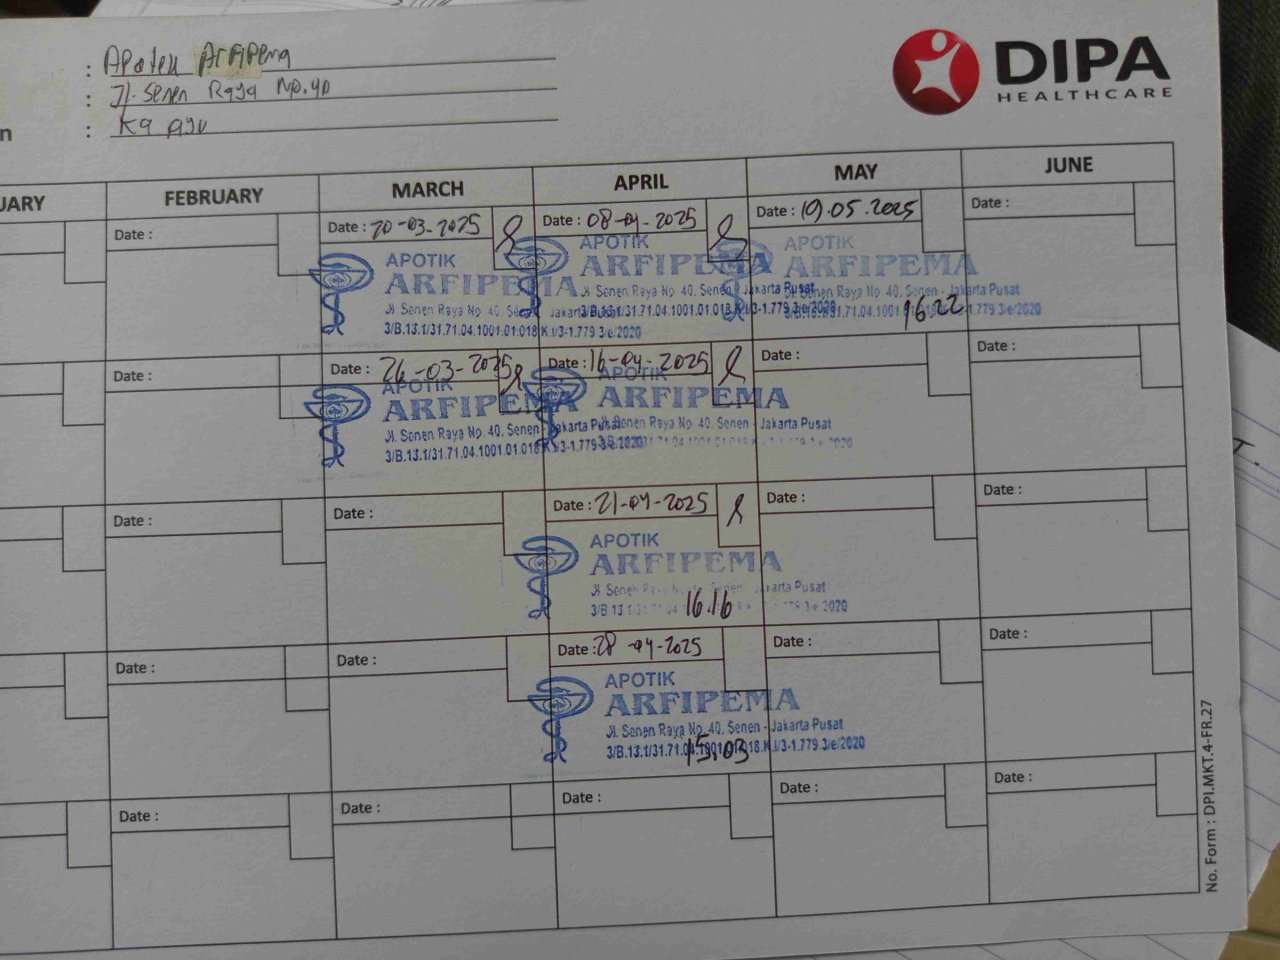 : Apotek Arfipema
: Jl. Senen Raya No.40
n : Ka Ayu
DIPA
HEALTHCARE
UARY FEBRUARY MARCH APRIL MAY JUNE
Date : Date : 20-03-2025 Date : 08-04-2025 Date : 19.05.2025 Date :
APOTIK APOTIK APOTIK
ARFIPEMA ARFIPEMA ARFIPEMA
Jl. Senen Raya No. 40. Senen - Jakarta Pusat Jl. Senen Raya No. 40. Senen - Jakarta Pusat Jl. Senen Raya No. 40. Senen - Jakarta Pusat
3/B.13.1/31.71.04.1001.01.018.K.I/3-1.779.3/e/2020 3/B.13.1/31.71.04.1001.01.018.K.I/3-1.779.3/e/2020 16.22 3-1.779.3/e/2020
Date : Date : 26-03-2025 Date : 16-04-2025 Date : Date :
APOTIK APOTIK
ARFIPEMA ARFIPEMA
Jl. Senen Raya No. 40. Senen - Jakarta Pusat Jl. Senen Raya No. 40. Senen - Jakarta Pusat
3/B.13.1/31.71.04.1001.01.018.K.I/3-1.779.3/e/2020
Date : Date : Date : 21-04-2025 Date : Date :
APOTIK
ARFIPEMA
Jl. Senen Raya Senen - Jakarta Pusat
16.16
Date : Date : Date : 28-04-2025 Date : Date :
APOTIK
ARFIPEMA
Jl. Senen Raya No. 40. Senen - Jakarta Pusat
3/B.13.1/31.71.04.1001.01.018.K.I/3-1.779.3/e/2020
15.03
Date : Date : Date : Date : Date :
No. Form : DPI.MKT.4-FR.27